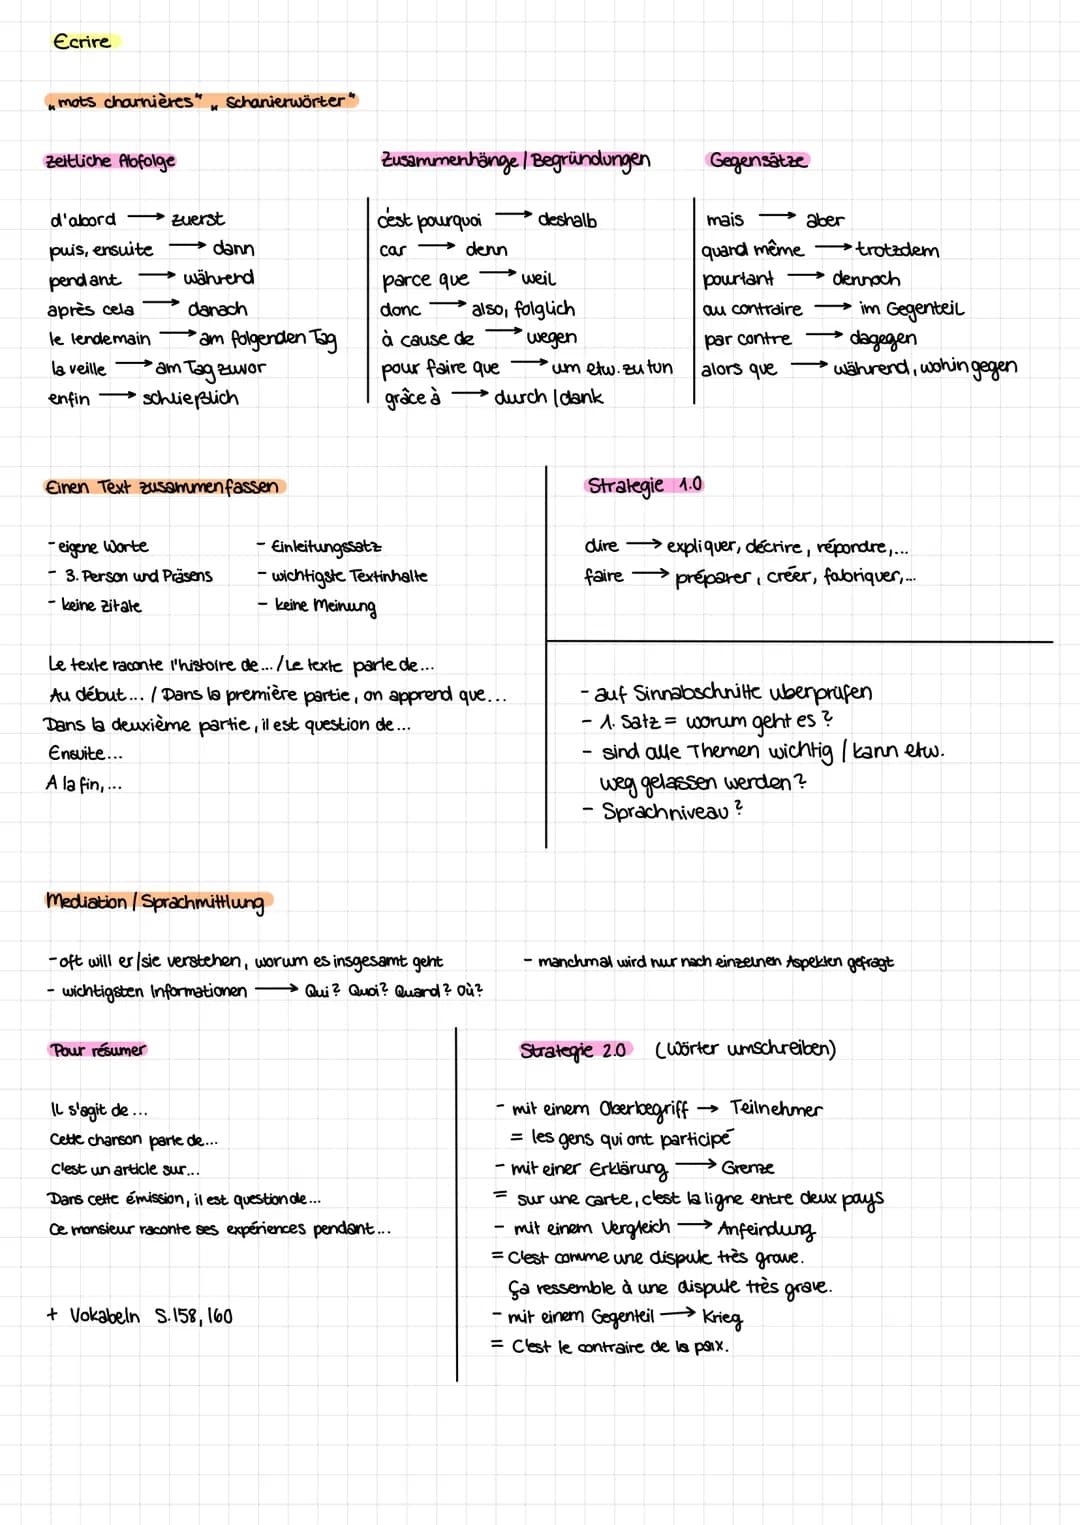 Ecrire
„mots charnières" „Schanierwörter"
zeitliche Abfolge
d'abord → zuerst
puis, ensuite → dann
pendant → während
après cela → danach
le lendemain → am folgenden Tag
la veille → am Tag zuvor
enfin → schließlich
Zusammenhänge / Begründungen
c'est pourquoi → deshalb
car → denn
parce que → weil
donc → also, folglich
à cause de → wegen
pour faire que → um etw. zu tun
grâce à → durch / dank
Gegensätze
mais → aber
quand même → trotzdem
pourtant → dennoch
au contraire → im Gegenteil
par contre → dagegen
alors que → während, wohingegen
Einen Text zusammenfassen
- eigene Worte
- 3. Person und Präsens
- keine Zitate
- Einleitungssatz
- wichtigste Textinhalte
- keine Meinung
Le texte raconte l'histoire de... / Le texte parle de...
Au début... / Dans la première partie, on apprend que...
Dans la deuxième partie, il est question de...
Ensuite...
A la fin,...
Strategie 1.0
dire → expliquer, décrire, répondre,...
faire → préparer, créer, fabriquer,...
- auf Sinnabschnitte überprüfen
- 1. Satz = worum geht es?
- sind alle Themen wichtig / kann etw.
weg gelassen werden?
- Sprachniveau?
Mediation / Sprachmittlung
- oft will er/sie verstehen, worum es insgesamt geht
- wichtigsten Informationen → Qui? Quoi? Quand? Où?
- manchmal wird nur nach einzelnen Aspekten gefragt
Pour résumer
Il s'agit de...
Cette chanson parle de...
C'est un article sur...
Dans cette émission, il est question de...
Ce monsieur raconte ses expériences pendant...
+ Vokabeln S.158, 160
Strategie 2.0 (Wörter umschreiben)
- mit einem Oberbegriff → Teilnehmer
= les gens qui ont participé
- mit einer Erklärung → Grenze
= sur une carte, c'est la ligne entre deux pays
- mit einem Vergleich → Anfeindung
= C'est comme une dispute très grave.
Ça ressemble à une dispute très grave.
- mit einem Gegenteil → Krieg
= C'est le contraire de la paix.